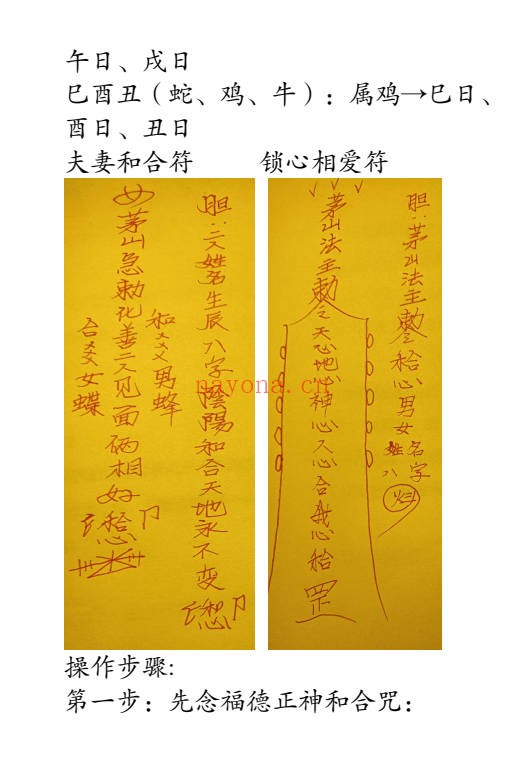 午日、戌日
巳酉丑（蛇、鸡、牛）：属鸡→巳日、
酉日、丑日
夫妻和合符 锁心相爱符
胆：二人姓名生辰八字陰陽和合天地永不变
茅山急勅化善二人见面俩相好
和 男蜂
合 女蝶
胆：茅山法主勅令 心男女姓名八字
茅山法主勅令天心地心神心人心合我心 罡
nayona.cn
操作步骤:
第一步：先念福德正神和合咒：